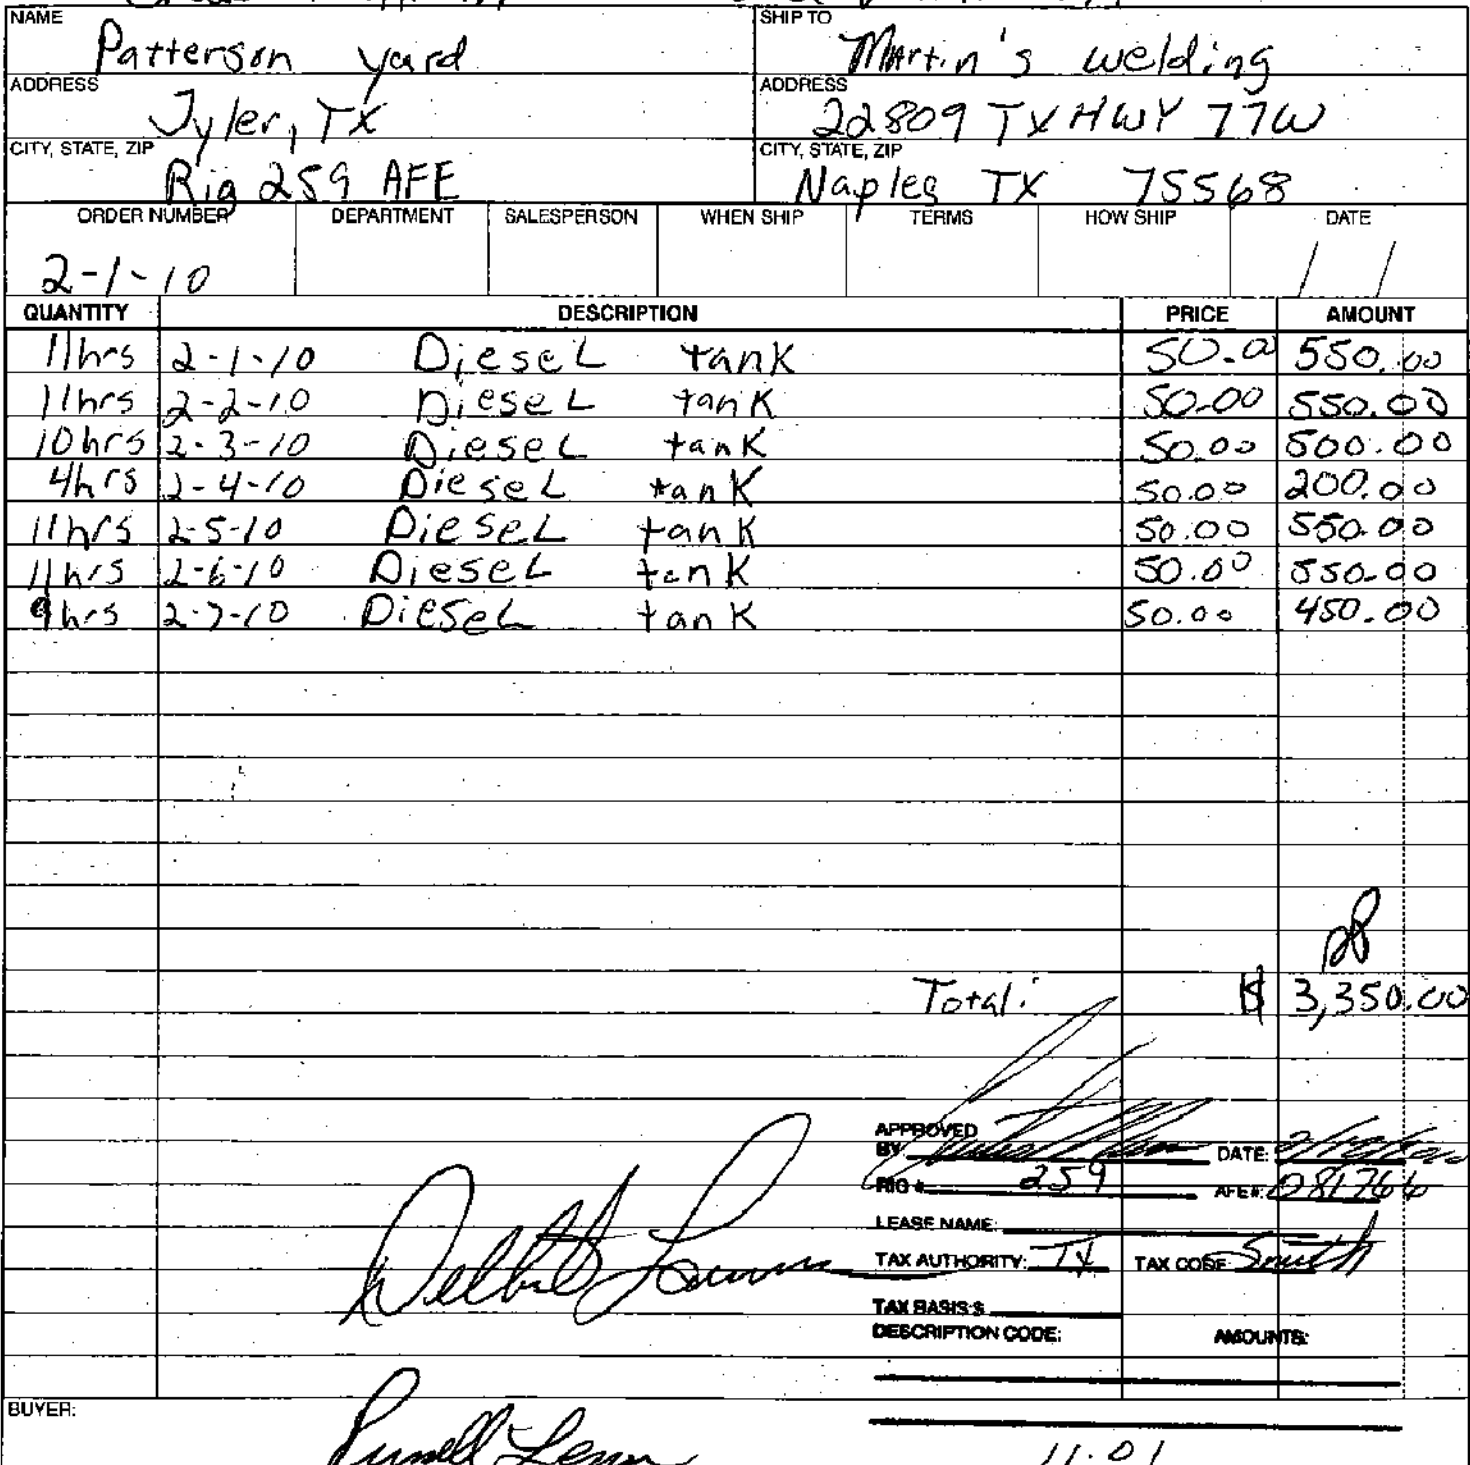 NAME
Patterson yard
SHIP TO
Martin's welding
ADDRESS
Tyler, TX
ADDRESS
22809 TX HWY 77W
CITY, STATE, ZIP
Rig 259 AFE
CITY, STATE, ZIP
Naples TX 75568
ORDER NUMBER DEPARTMENT SALESPERSON WHEN SHIP TERMS HOW SHIP DATE
2-1-10 / /
QUANTITY DESCRIPTION PRICE AMOUNT
11hrs 2-1-10 Diesel tank 50.00 550.00
11hrs 2-2-10 Diesel tank 50.00 550.00
10hrs 2-3-10 Diesel tank 50.00 500.00
4hrs 2-4-10 Diesel tank 50.00 200.00
11hrs 2-5-10 Diesel tank 50.00 550.00
11hrs 2-6-10 Diesel tank 50.00 550.00
9hrs 2-7-10 Diesel tank 50.00 450.00
Total: $ 3,350.00
APPROVED
BY DATE:
RIG #. 259 AFE#: 081766
LEASE NAME:
TAX AUTHORITY: TX TAX CODE: Smith
TAX BASIS $
DESCRIPTION CODE: AMOUNTS:
BUYER:
11.01